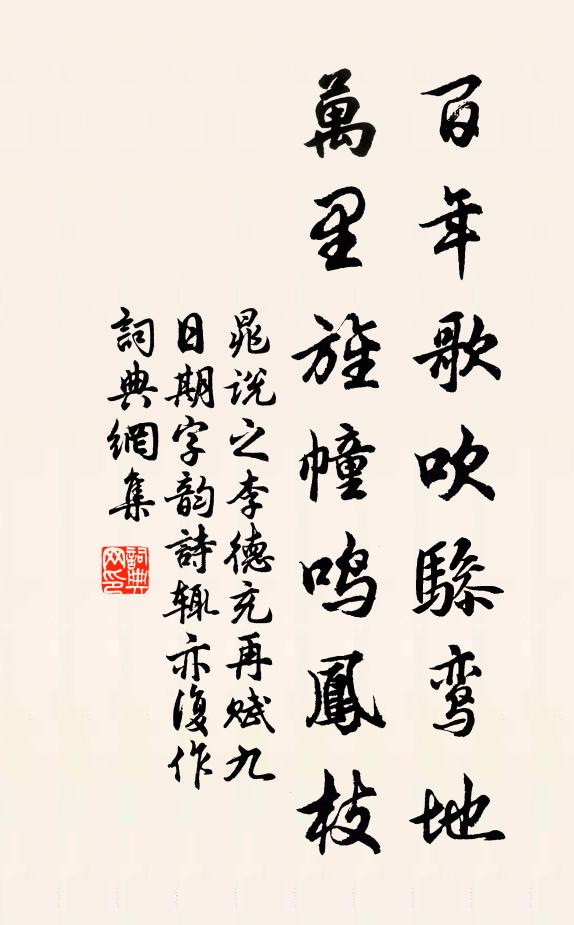 百年歌吹驂鸾地
萬里旌幢鸣鳳枝
晁说之李德充再赋九
日期字韵詩辄亦復作
詞典網集
詞典网印